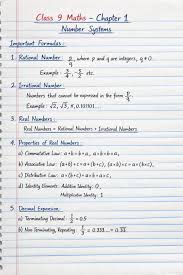 Class 9 Maths - Chapter 1
Number Systems
Important Formulas :
1. Rational Number : p/q, where p and q are integers, q ≠ 0.
Example : 3/4, -5/2 etc.
2. Irrational Number :
Numbers that cannot be expressed in the form p/q.
Example : √2, √3, π, 0.101101...
3. Real Numbers :
Real Numbers = Rational Numbers + Irrational Numbers
4. Properties of Real Numbers :
a) Commutative Law : a + b = b + a, a × b = b × a
b) Associative Law : (a + b) + c = a + (b + c), (a × b) × c = a × (b × c)
c) Distributive Law : a × (b + c) = a × b + a × c
d) Identity Elements : Additive Identity : 0,
Multiplicative Identity : 1
5. Decimal Expansion :
a) Terminating Decimal : 1/2 = 0.5
b) Non Terminating, Repeating : 1/3 = 0.333... =